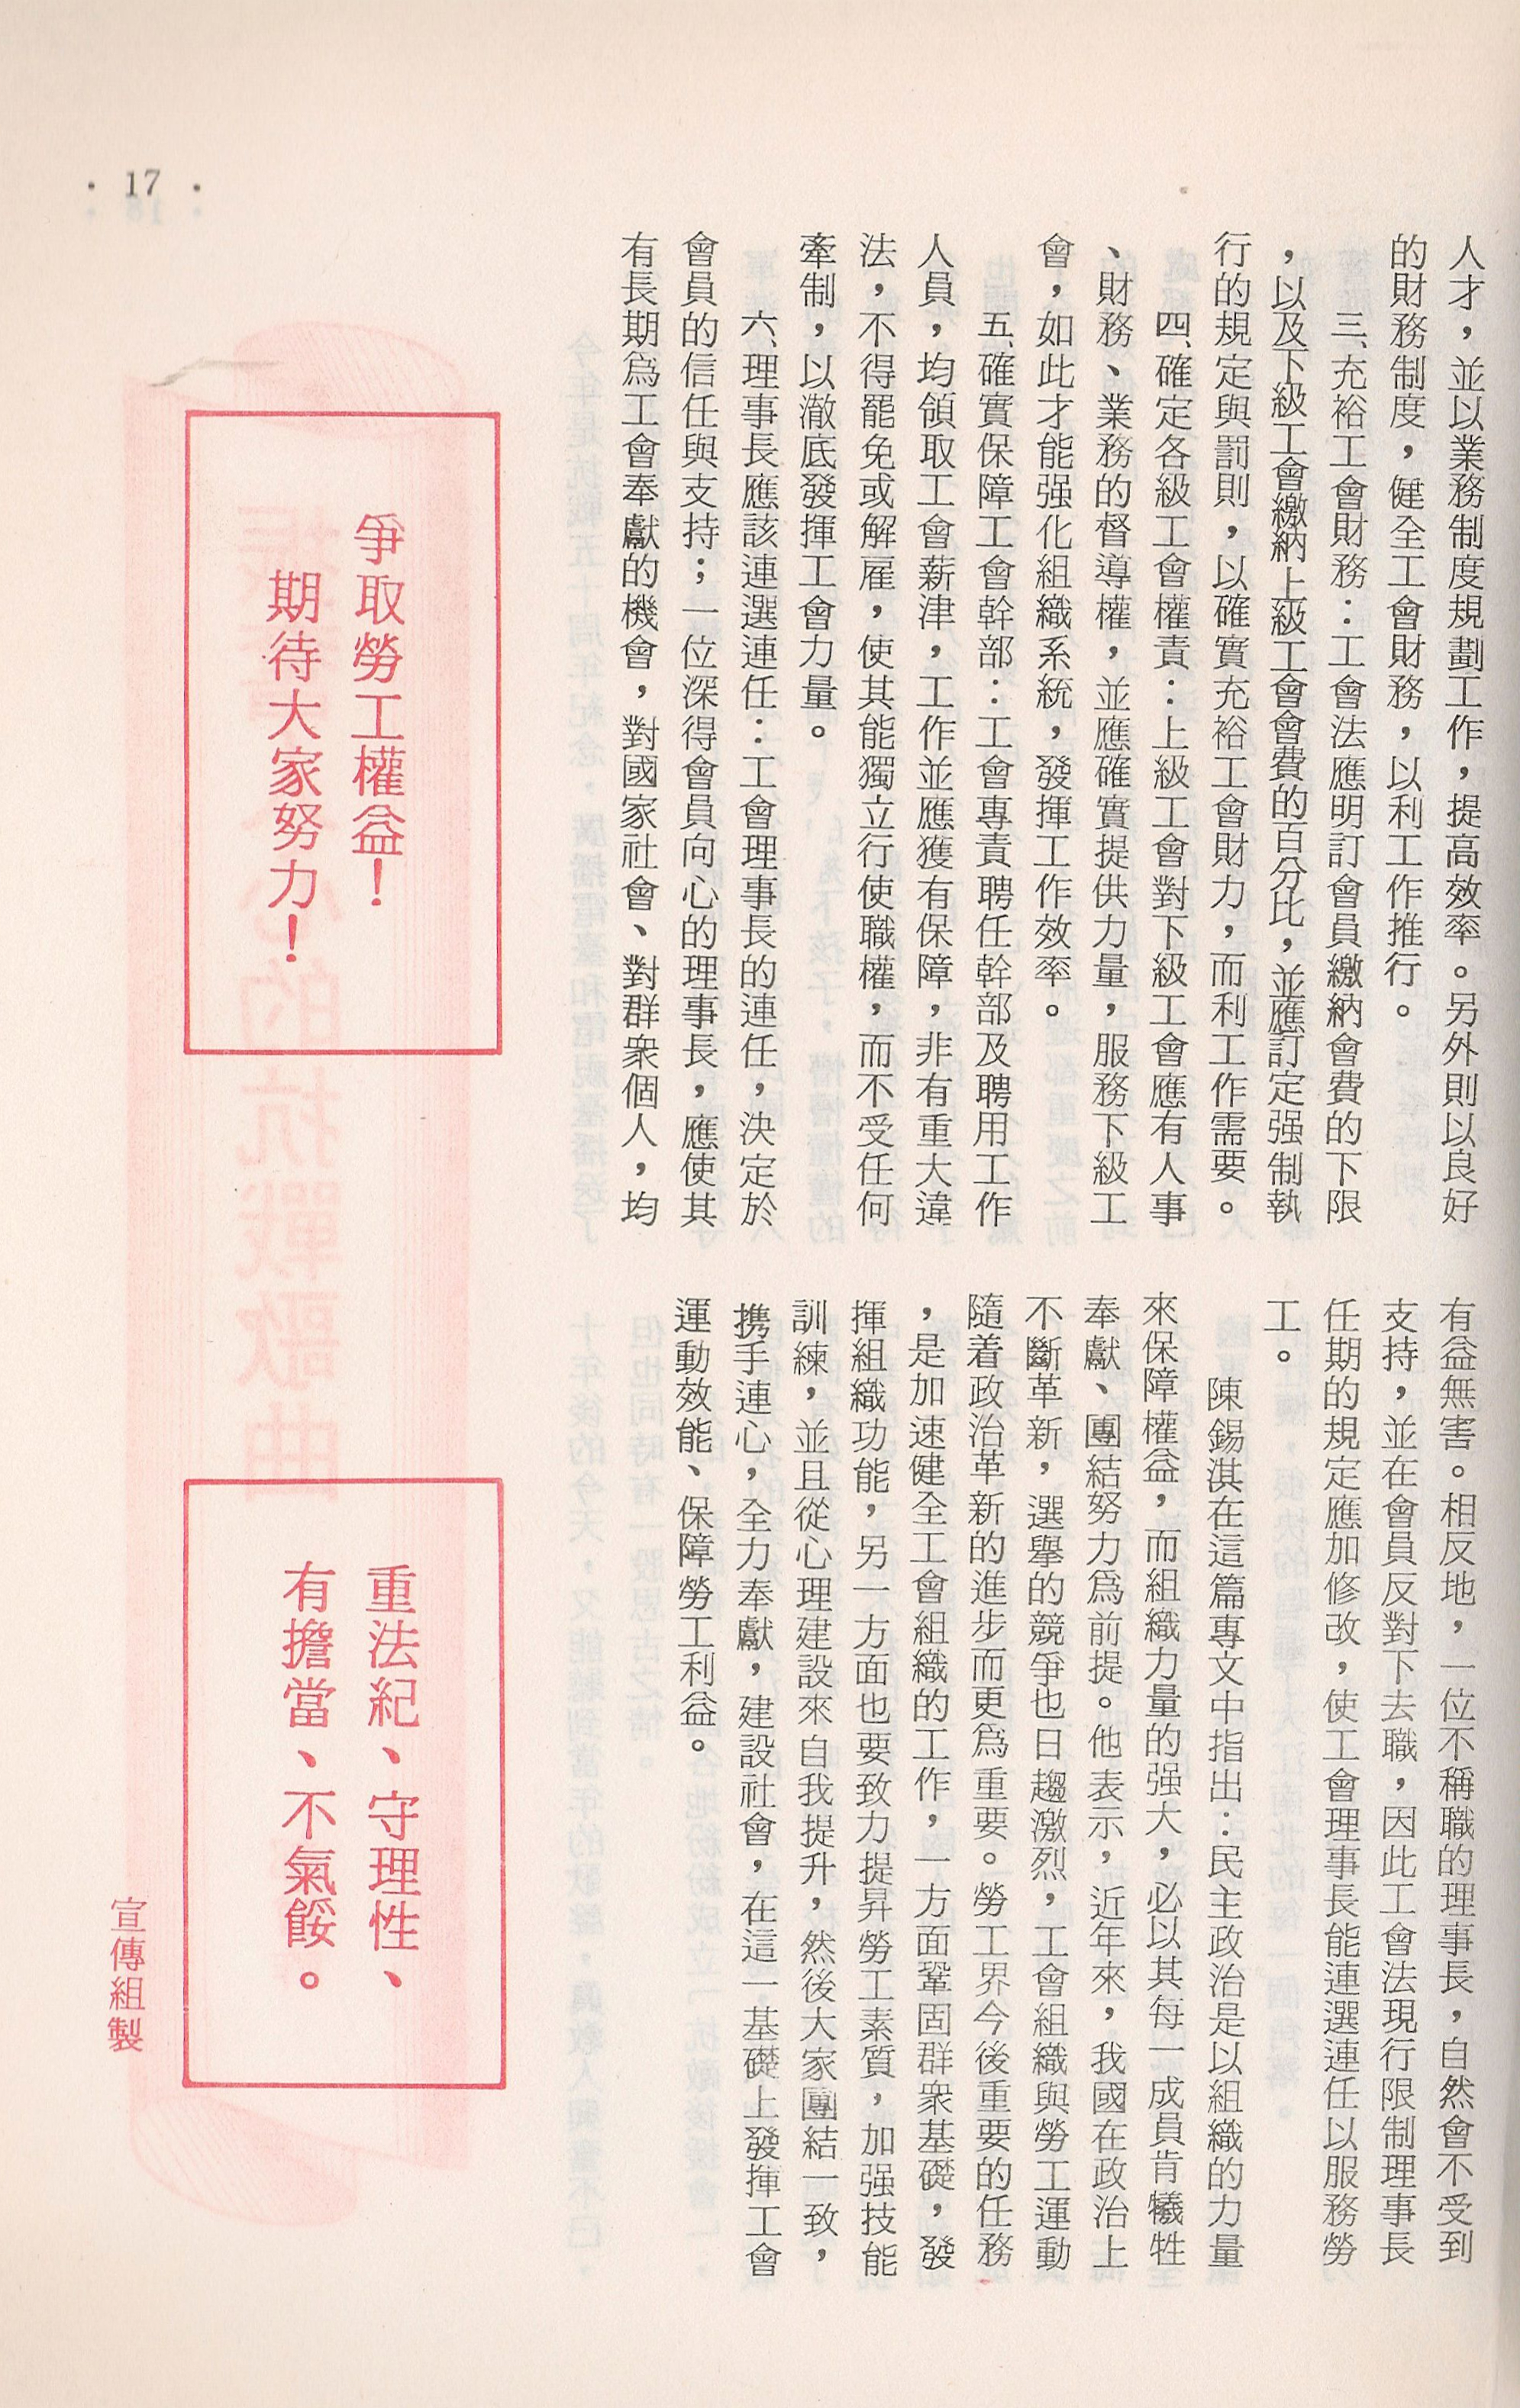 人才，並以業務制度規劃工作，提高效率。另外則以良好
的財務制度，健全工會財務，以利工作推行。
三、充裕工會財務：工會法應明訂會員繳納會費的下限
，以及下級工會繳納上級工會會費的百分比，並應訂定强制執
行的規定與罰則，以確實充裕工會財力，而利工作需要。
四、確定各級工會權責：上級工會對下級工會應有人事
、財務、業務的督導權，並應確實提供力量，服務下級工
會，如此才能强化組織系統，發揮工作效率。
五、確實保障工會幹部：工會專責聘任幹部及聘用工作
人員，均領取工會薪津，工作並應獲有保障，非有重大違
法，不得罷免或解雇，使其能獨立行使職權，而不受任何
牽制，以澈底發揮工會力量。
六、理事長應該連選連任：工會理事長的連任，決定於
會員的信任與支持；一位深得會員向心的理事長，應使其
有長期爲工會奉獻的機會，對國家社會、對群衆個人，均
有益無害。相反地，一位不稱職的理事長，自然會不受到
支持，並在會員反對下去職，因此工會法現行限制理事長
任期的規定應加修改，使工會理事長能連選連任以服務勞
工。
陳錫淇在這篇專文中指出：民主政治是以組織的力量
來保障權益，而組織力量的强大，必以其每一成員肯犧牲
奉獻、團結努力爲前提。他表示，近年來，我國在政治上
不斷革新，選舉的競爭也日趨激烈，工會組織與勞工運動
隨着政治革新的進步而更爲重要。勞工界今後重要的任務
，是加速健全工會組織的工作，一方面鞏固群衆基礎，發
揮組織功能，另一方面也要致力提昇勞工素質，加强技能
訓練，並且從心理建設來自我提升，然後大家團結一致，
携手連心，全力奉獻，建設社會，在這一基礎上發揮工會
運動效能、保障勞工利益。
爭取勞工權益！
期待大家努力！
重法紀、守理性、
有擔當、不氣餒。
宣傳組製
• 17 •